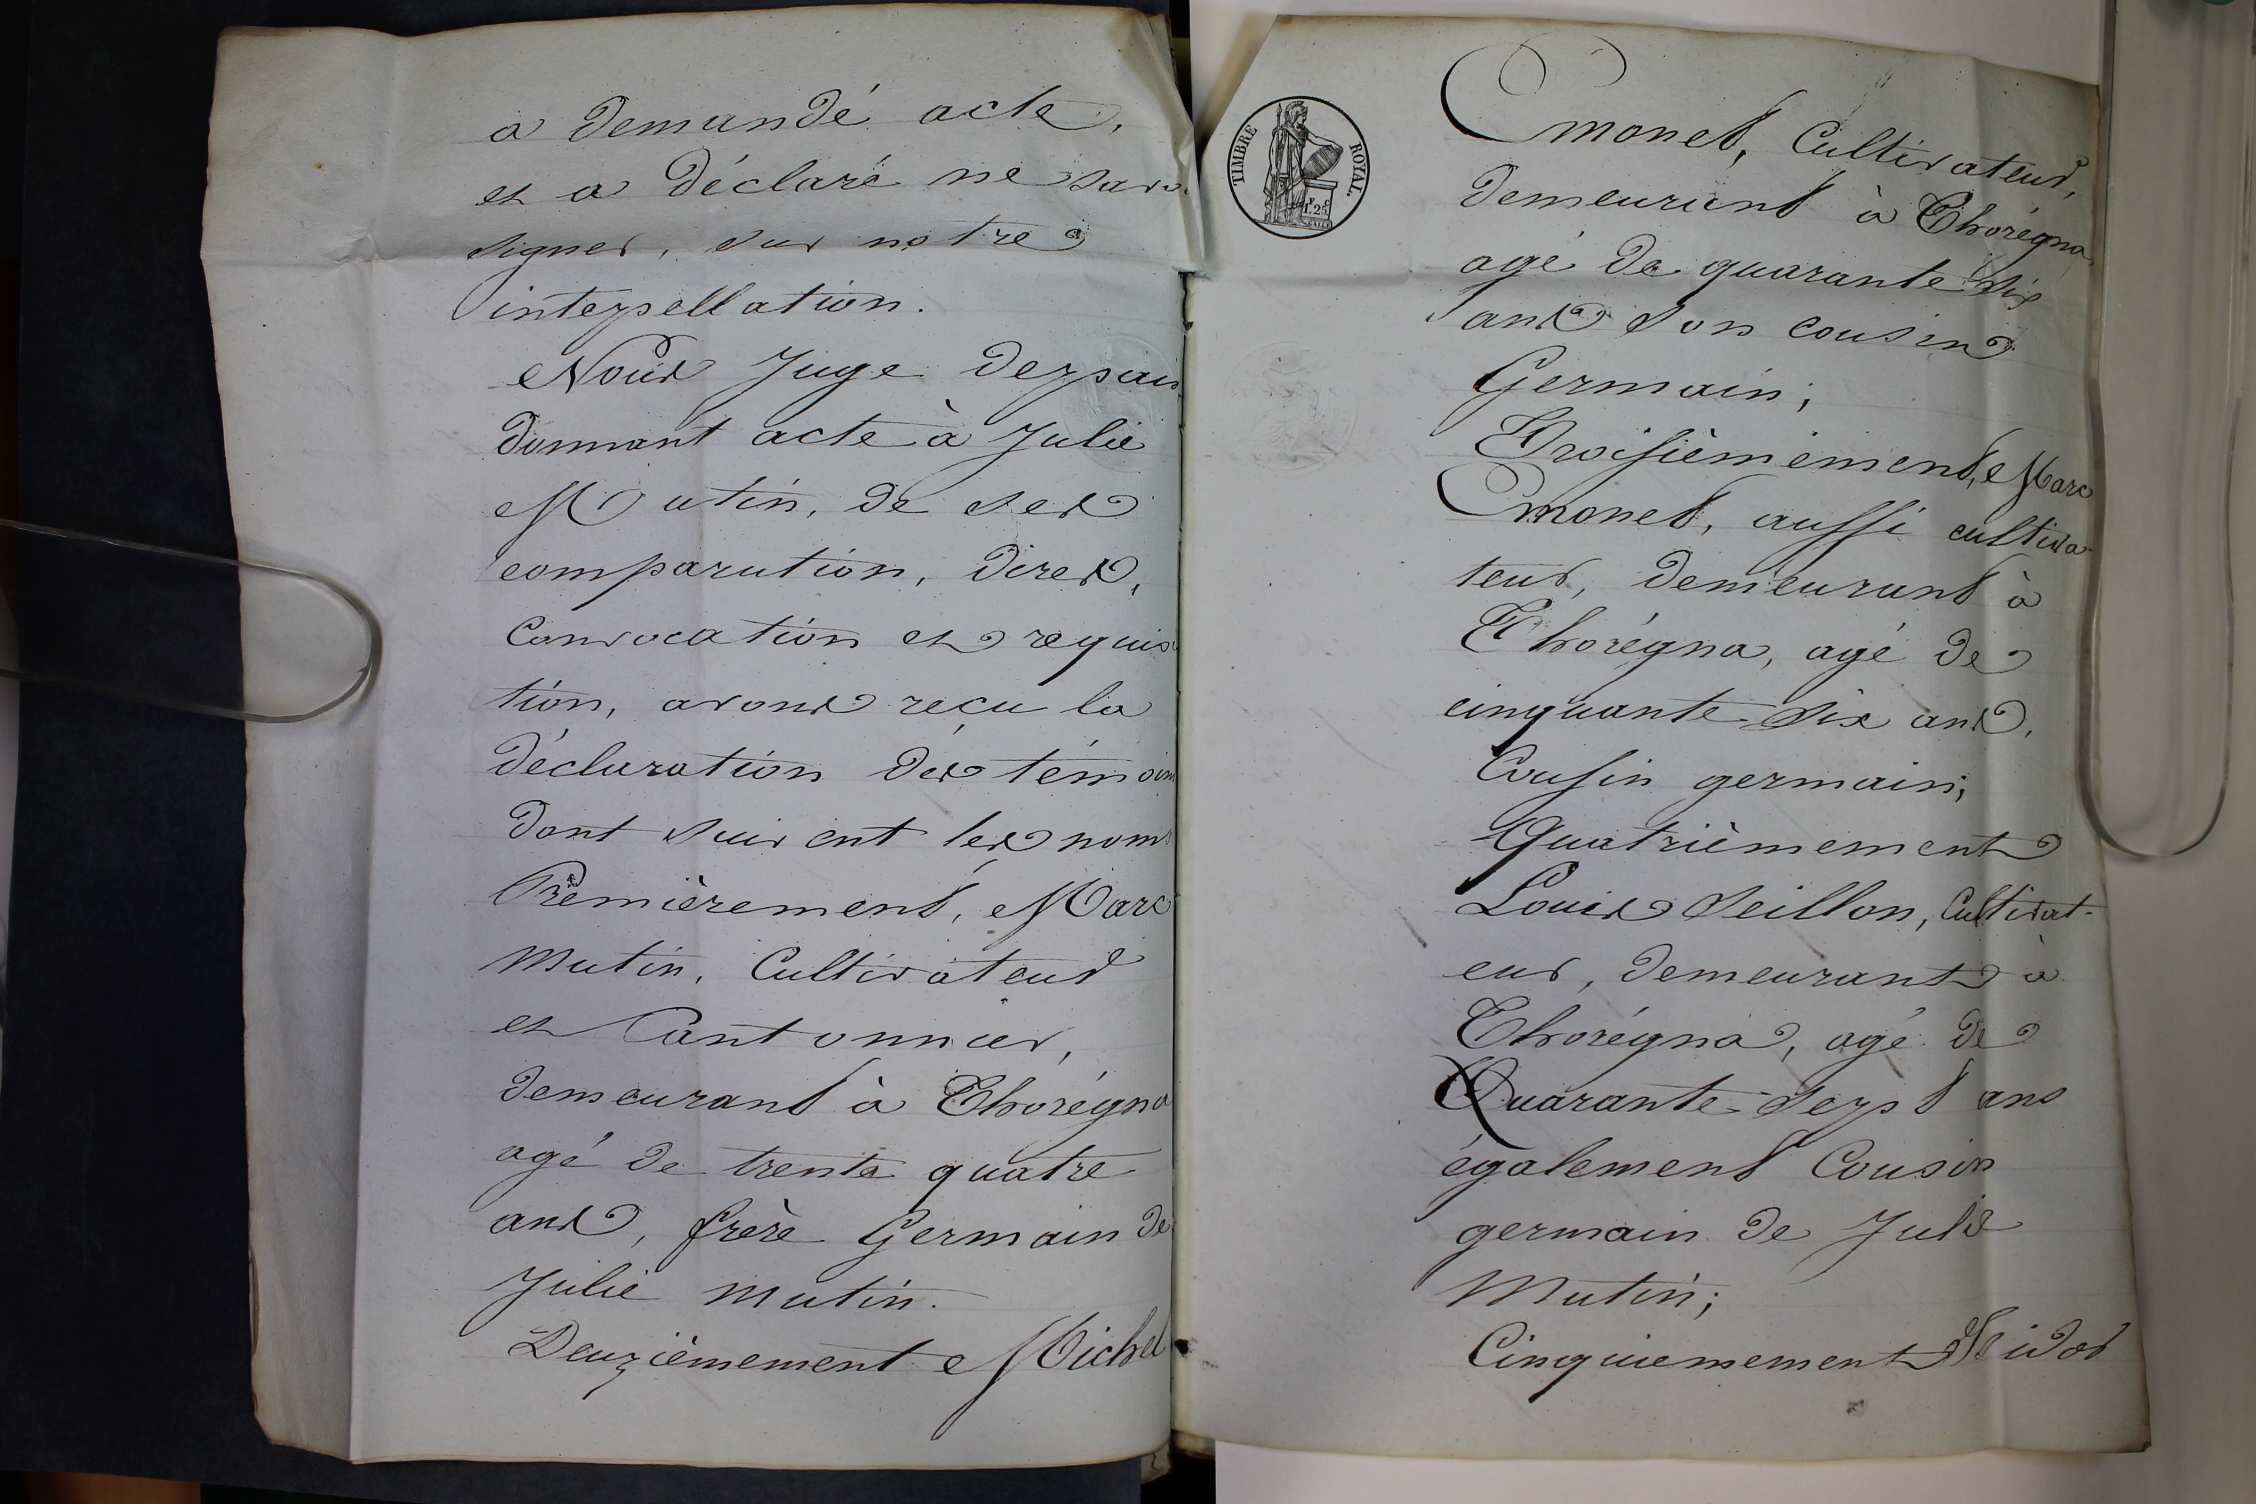 a demandé acte,
et a déclaré ne savo
signer, sur notre
interpellation.
Nous Juge de pais
donnant acte à Julie
Mutin, de ses
comparution, dires,
Convocation et requisi
tion, avons reçu la
déclaration des témoins
dont suivent les noms
Premièrement, Marc
Mutin, Cultivateur
et Cantonnier,
demeurant à Thorégna
agé de trente quatre
ans, frère Germain de
Julie Mutin.
Deuzièmement Michel
TIMBRE ROYAL
1.25
Emonet, Cultivateur,
demeurant à Thorégna,
agé de quarante six
ans son cousin
Germain;
Troisièmement, Marc
Emonet, aussi cultiva-
teur, demeurant à
Thorégna, agé de
cinquante six ans,
Cousin germain;
Quatrièmement
Louis Seillon, Cultivat-
eur, demeurant à
Thorégna, agé de
Quarante-Sept ans
également Cousin
germain de Julie
Mutin;
Cinquiemement